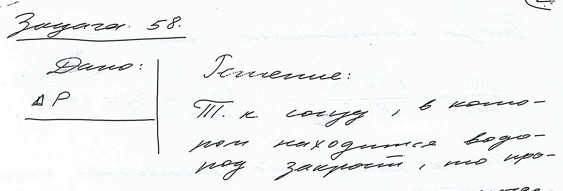 Задача. 58.
Дано:
Δ P
Решение:
Т. к сосуд, в кото-
ром находится водо-
род закрыт, то про-